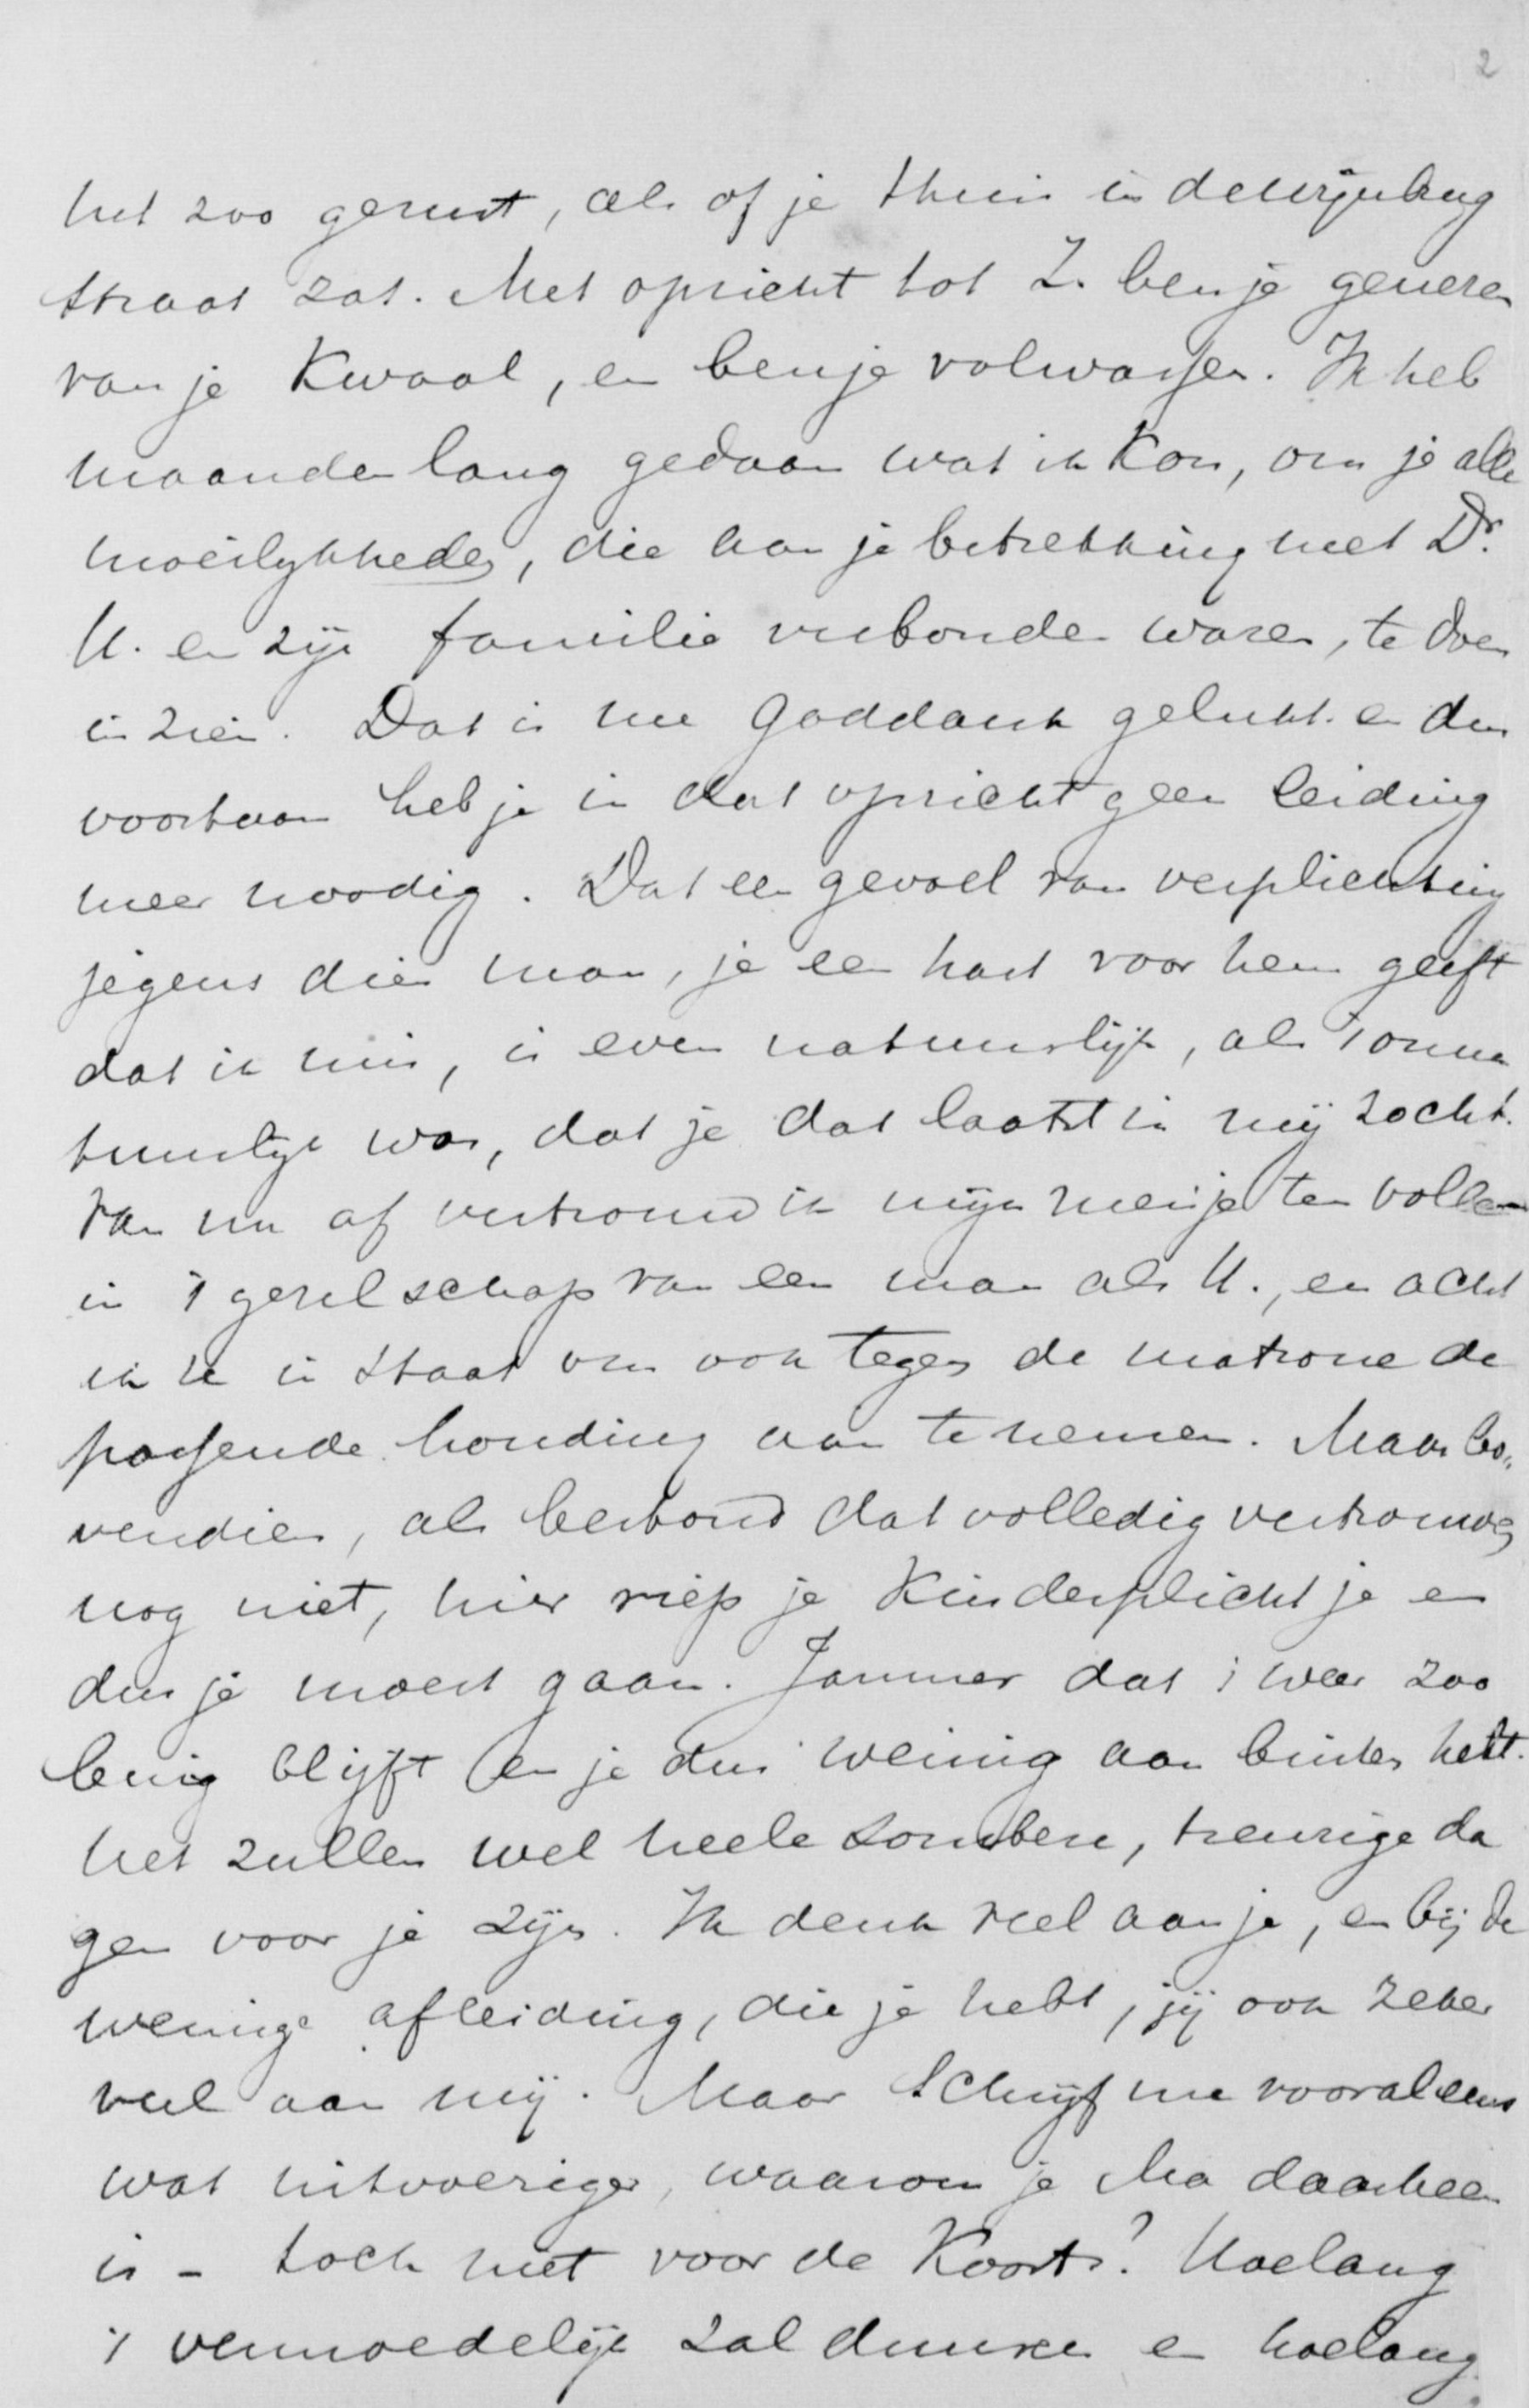 2
het zoo gerust, als of je thuis in de
straat zat. Met opzicht tot Z. ben je genezen
van je kwaal, en ben je volwassen. Ik heb
maanden lang gedaan wat ik kon, om je alle
moeilykheden, die aan je betrekking met Dr.
U. en zijn familie verbonden waren, te doen
inzien. Dat is nu Goddank gelukt en dus
voortaan heb je in dat opzicht geen leiding
meer noodig. Dat een gevoel van verplichting
jegens dien man, je een hart voor hem geeft
dat ik mis, is even natuurlijk, als 't onna
tuurlijk was, dat je dat laatst in mij zocht.
Van nu af vertrouw ik mijn meisje ten volle
in 't gezelschap van een man als U., en acht
ik ze in staat om ook tegen de matrone de
passende houding aan te nemen. Maar bo„
vendien, al bestond dat volledig vertrouwen
nog niet, hier riep je kinderplicht je en
dus je moest gaan. Jammer dat 't weer zoo
blijft en je dus weinig aan buiten hebt.
het zullen wel heele sombere, treurige da
gen voor je zijn. Ik denk veel aan je, en bij de
weinige afleiding, die je hebt, jij ook zeker
veel aan mij. Maar schrijf me vooral eens
wat uitvoeriger, waarom je Ma daarheen
is - toch niet voor de koorts? Hoelang
't vermoedelijk zal duuren en hoelang